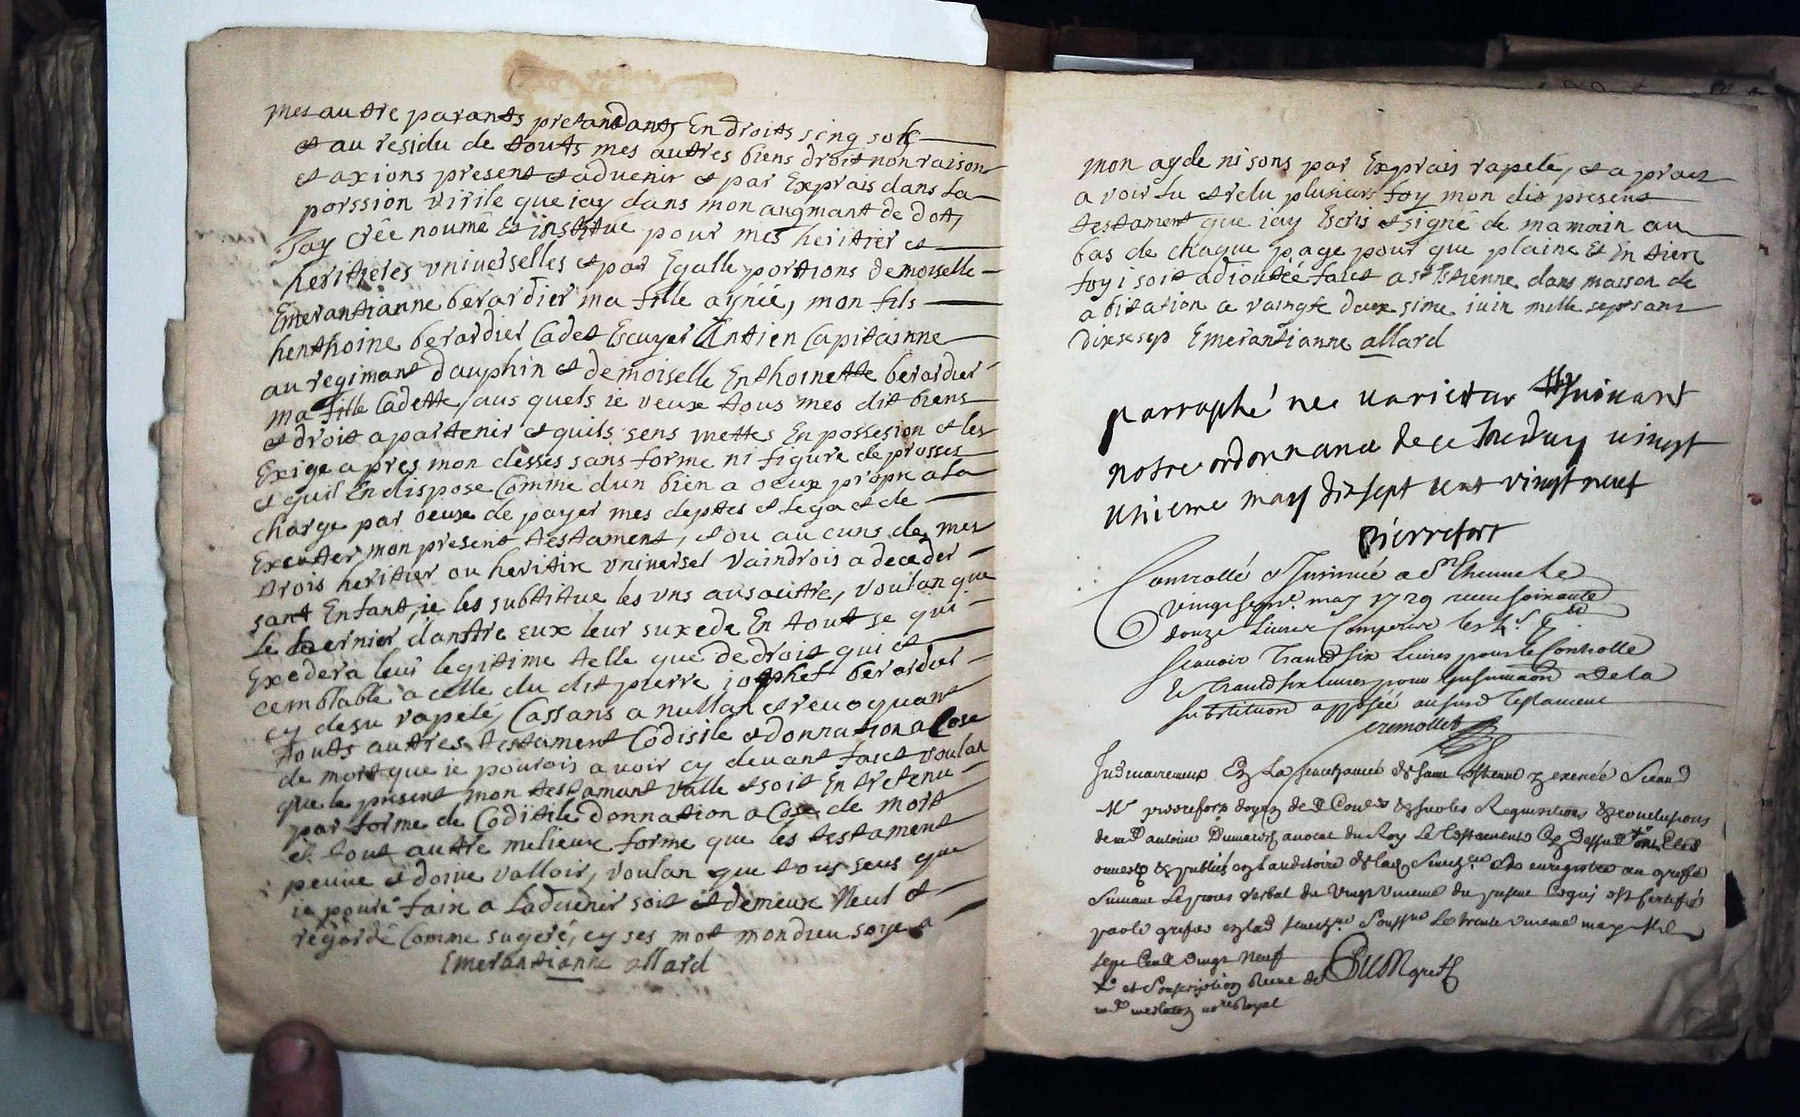 mes autre parants pretandants En droits sinq sols
et au residu de touts mes autres biens droit non raison
et axions present et advenir et par Exprais dans la
porssion virile que iay dans mon augmant de dott,
Jay crée noumé Et institué pour mes heritier et
heritieres universelles et par Egalle portions demoiselle
Emerantianne berardier ma fille aynée, mon fils
henthoine berardier Cadet Escuyer Antien Capitainne
au regimant dauphin et demoiselle Enthoinette berardier
ma fille Cadette, aus quels ie veux tous mes dit biens
et droit apartenir et quils sens mettes En possesion et les
Exige apres mon desses sans forme ni figure de prosses
et quil En dispose Comme dun bien a oeux propre a la
charge par oeux de payer mes deptes et lega et de
Executer mon present testament, et ou aucuns de mes
trois heritier ou heritire universel vaindrois a deceder
sant Enfant, ie les subtitue les uns aus autre, voulan que
le dernier dantre eux leur suxede En tout se qui
Exedera leur legitime telle que de droit qui et
cemblable a celle du dit pierre josphet berardier
cy desu rapelé, Cassans anullan et revoquant
touts autres testament Codisile et donnation a Cose
de mort que ie pourois avoir cy devant faict voulan
que le present mon testamant valle et soit Entretenu
par forme de Coditile donnation a Cose de mort
et tout autre melieux forme que les testament
peuve et doive valloir, voulan que tous seus que
ie pouré faire a Ladvenir soit et demeure Neul et
regardé Comme sugeré, cy ses mot mon dieu soye a
Emerantianne allard
mon ayde ni sons par Exprais rapelé, et a prais
avoir lu et relu plusieurs foy mon dit present
testament que iay Escris et signé de ma main au
bas de chaque page pour que plaine Et Entiere
foy i soit adioutée faict a St Estienne dans maison de
abitation a vaingte deuxsime iuin mille sept sans
dixsesep Emerantianne allard
parraphé ne varietur suivant
nostre ordonnance de ce Jourduy vingt
unieme may dixsept cent vingt neuf
Pierrefort
Controllé et Insinué a St Etienne le
vingt sept.e may 1729 receu soixante
douze livres Compris les 4s. d.
scavoir Trante six livres pour le Controlle
et trante six livres pour Insinuaon de la
substituaon apposée au susd Testament
cremollet
Judiciairement En La senechaucée de saint Estienne
Mr pierrefort doyen de Conlrs et sur les Requisitions et conclusions
de md antoine Dumarest avocat du Roy Le testament Cy Dessus
ouvert et publié en Lauditoire de lad Sennech.ee et enregistré au greffe
Suivant Le proces verbal du vingt unieme du present Ce qui est Certifié
par le grefier en lad senech.ee Soussné Le trante unieme may Mil
sept Cent vingt neuf
X et souscription Receue de
md merlaton nore Royal